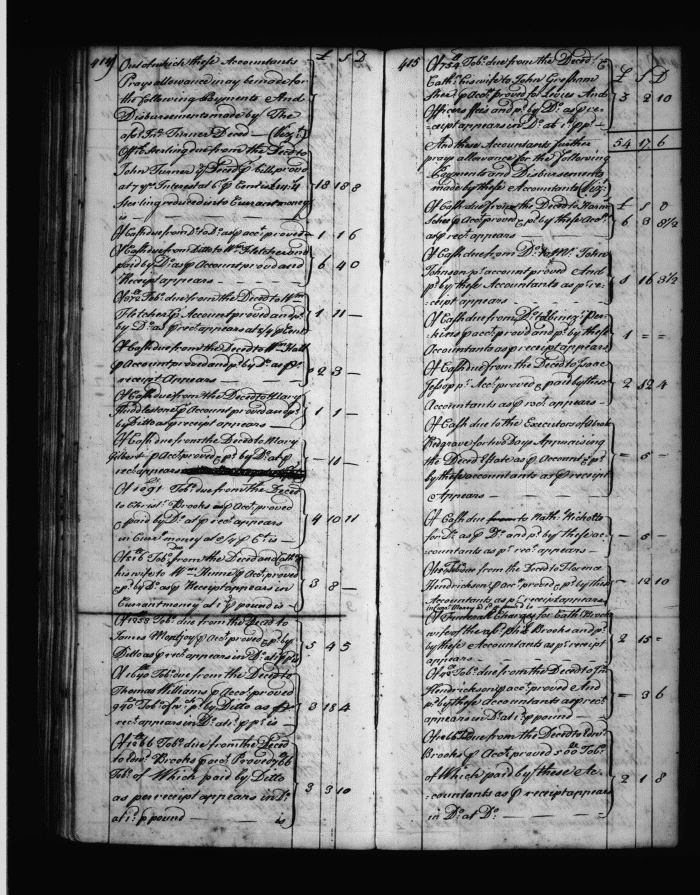 414
£ S D
Out of which these Accountants
Prays allowance may be made for
the following Payments And
Disbursements made by The
afsd Jno. Turner Deced (Viz:)
Of Sterling due from the Deced to
John Turner Deced p bills proved
at 7 yrs Interest at 6 p Cent is
Sterling reduced to Current money
is 18 18 8
Of Cash due from Do to Do as p acct proved 1 1 6
Of Cash due from Ditto to Wm Fletcher and
paid by Do as p Account proved and
Receipt appears 6 4 0
Of Tobo due from the Deced to Wm
Fletcher p Account proved and pd
by Do as p rect appears at p Cent 1 11 —
Of Cash due from the Deced to Wm Hall
p Account proved and pd by Do as p
receipt Appears 2 3 —
Of Cash due from the Deced to Mary
Huddlestone p Account proved and pd
by Ditto as p receipt appears 1 1 —
Of Cash due from the Deced to Mary
Gilbert p Acct proved & pd by Do as p
rect appears — 11 —
Of Tobo due from the Deced
to Christr Brooks as p Acct proved
paid by Do as p rect appears
in Currt money at p Ct is 4 10 11
Of 816 Tobo due from the Deced and Cathe
his wife to Wm p Acct proved
& pd by Do as p Receipt appears in
Current money at 1d p pound is 3 8 —
Of 1253 Tobo due from the Deced to
James Mountjoy p Acct proved & pd by
Ditto as p rect appears in Do at 1d p lb 5 4 5
Of 1640 Tobo due from the Deced to
Thomas Williams p Acct proved
940 Tobo of wch pd by Ditto as p
rect appears in Do at 1d p p is 3 18 4
Of 1266 Tobo due from the Deced
to Edwd Brooks p acct Proved 766
Tobo of Which paid by Ditto
as per receipt appears in Do
at 1d p pound is 3 3 10
415
Of 754 Tobo due from the Deced &
Cathe his wife to John Gresham
Sherr p Acct proved for Levies And
Officers ffees and pd by Do as p re-
ceipt appears in Do at 1d p p £ S D 3 2 10
54 17 6
And these Accountants further
prays allowance for the following
Payments and Disbursements
made by these Accountants (Viz:
£ S D
Of Cash due from the Deced to Aaron
p Acct proved & pd by these Acct
as p rect appears 6 3 8½
Of Cash due from Do to Mr John
Johnson pr account proved And
pd by these Accountants as p re-
ceipt appears 1 16 3½
Of Cash due from Do to Per-
kins p acct proved and pd by these
Accountants as p receipt appears 1 = =
Of Cash due from the Deced to Isaac
Jessop pr Acct proved & paid by these
Accountants as p rect appears 2 12 4
Of Cash due to the Executors of Abrah
Redgrave for two Days Appraising
the Deced Estate as p Account & pd
by these accountants as p receipt
Appears — 5 —
Of Cash due to Nath. Nicholls
for Do as p Do and pd by these ac-
countants as pr rect appears — 5 —
Of Tobo due from the Deced to Florence
Hendrickson p acct proved & pd by these
Accountants as pr receipt appears
in Curr Money — 12 10
Of Funerall Charges for Cathe Brooks
wife of the afsd Phil Brooks and pd
by these Accountants as p receipt
appears 2 15 =
Of Tobo due from the Deced to Jn
Hendrickson p acct proved And
pd by these Accountants as p rect
appears in Do at 1d p pound — 3 6
Of Tobo due from the Deced to Edwd
Brooks p Acct proved 500 Tobo
of Which paid by these Ac-
countants as p receipt appears
in Do at Do 2 1 8